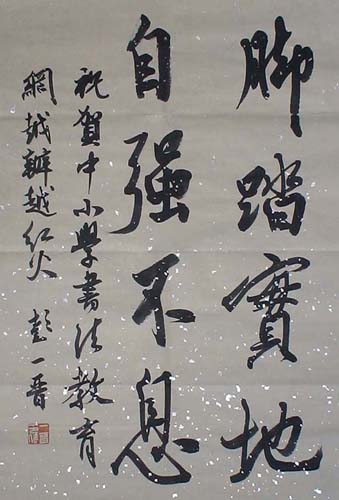 脚踏實地
自强不息
祝賀中小學書法教育
網越辦越红火 彭一晋